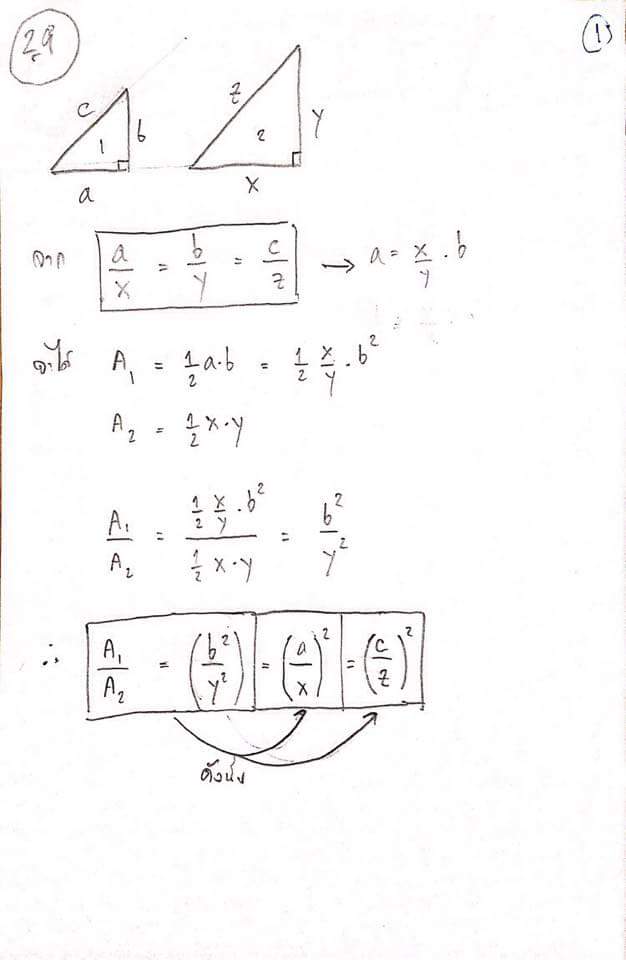 29
1
c
1
b
a
z
2
y
x
จาก a/x = b/y = c/z → a = x/y · b
จะได้ A₁ = 1/2 a·b = 1/2 x/y · b²
A₂ = 1/2 x·y
A₁/A₂ = (1/2 x/y · b²)/(1/2 x·y) = b²/y²
∴ A₁/A₂ = (b²/y²) = (a/x)² = (c/z)²
ดังนั้น